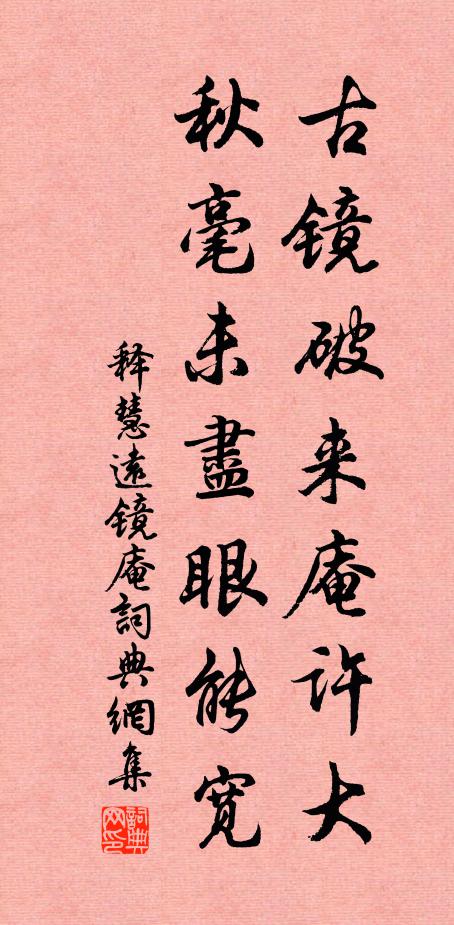 古镜破来庵许大
秋毫未盡眼能寬
释慧遠镜庵詞典網集
詞典网印